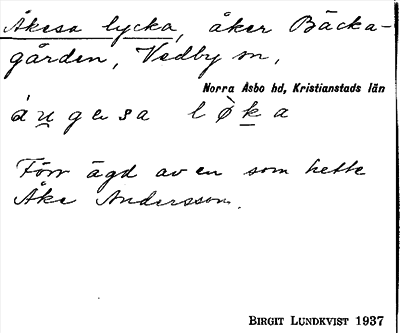 Åkesa lycka, åker Bäcka-
gården, Vedby sn,
Norra Åsbo hd, Kristianstads län
lø̀ka
Förr ägd av en som hette
Åke Andersson.
BIRGIT LUNDKVIST 1937